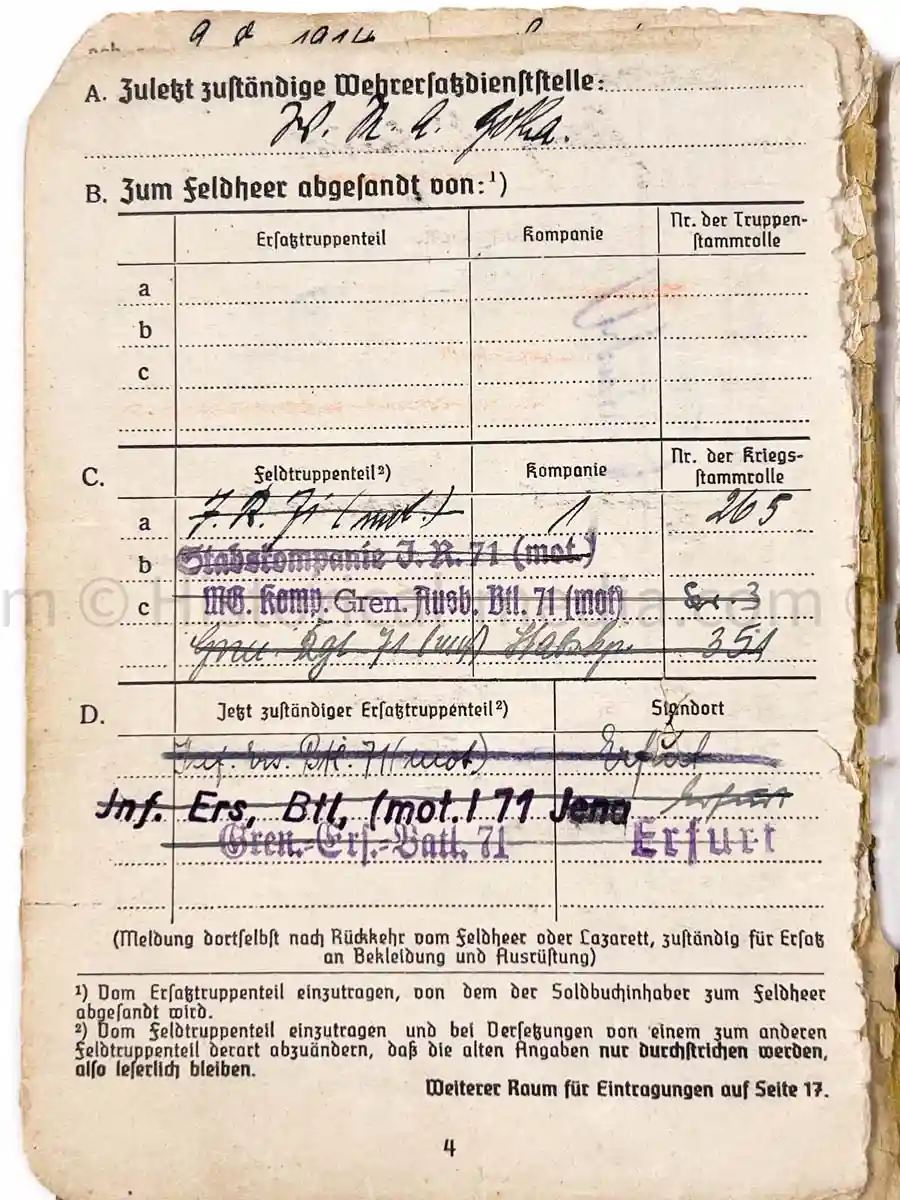 9 8 1914
A. Zuletzt zuständige Wehrersatzdienststelle:
Gotha.
B. Zum Feldheer abgesandt von:¹)
Ersatztruppenteil Kompanie Nr. der Truppen-
stammrolle
a
b
c
C. Feldtruppenteil²) Kompanie Nr. der Kriegs-
stammrolle
a J. R. 71 (mot.) 1 265
b Stabskompanie J. R. 71 (mot.)
c MG. Komp. Gren. Ausb. Btl. 71 (mot) 3
Gren. Rgt 71 (mot) Stabskp. 351
D. Jetzt zuständiger Ersatztruppenteil²) Standort
Inf. Ers. Btl. 71 (mot) Erfurt
Inf. Ers, Btl, (mot.) 71 Jena Erfurt
Gren.-Ers.-Batl. 71 Erfurt
(Meldung dortselbst nach Rückkehr vom Feldheer oder Lazarett, zuständig für Ersatz
an Bekleidung und Ausrüstung)
¹) Vom Ersatztruppenteil einzutragen, von dem der Soldbuchinhaber zum Feldheer
abgesandt wird.
²) Vom Feldtruppenteil einzutragen und bei Versetzungen von einem zum anderen
Feldtruppenteil derart abzuändern, daß die alten Angaben nur durchstrichen werden,
also leserlich bleiben.
Weiterer Raum für Eintragungen auf Seite 17.
4